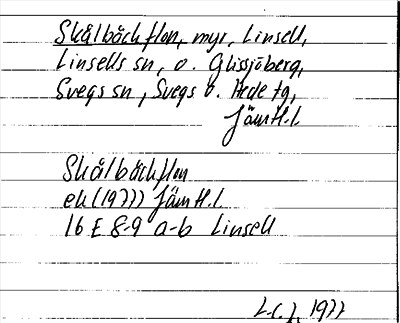 Skålbäckflon, myr, Linsell,
Linsells sn, o. Glissjöberg,
Svegs sn, Svegs o. Hede tg,
Jämtl. l
Skålbäckflon
ek (1977) Jämtl. l
16 E 8-9 a-b Linsell
1977